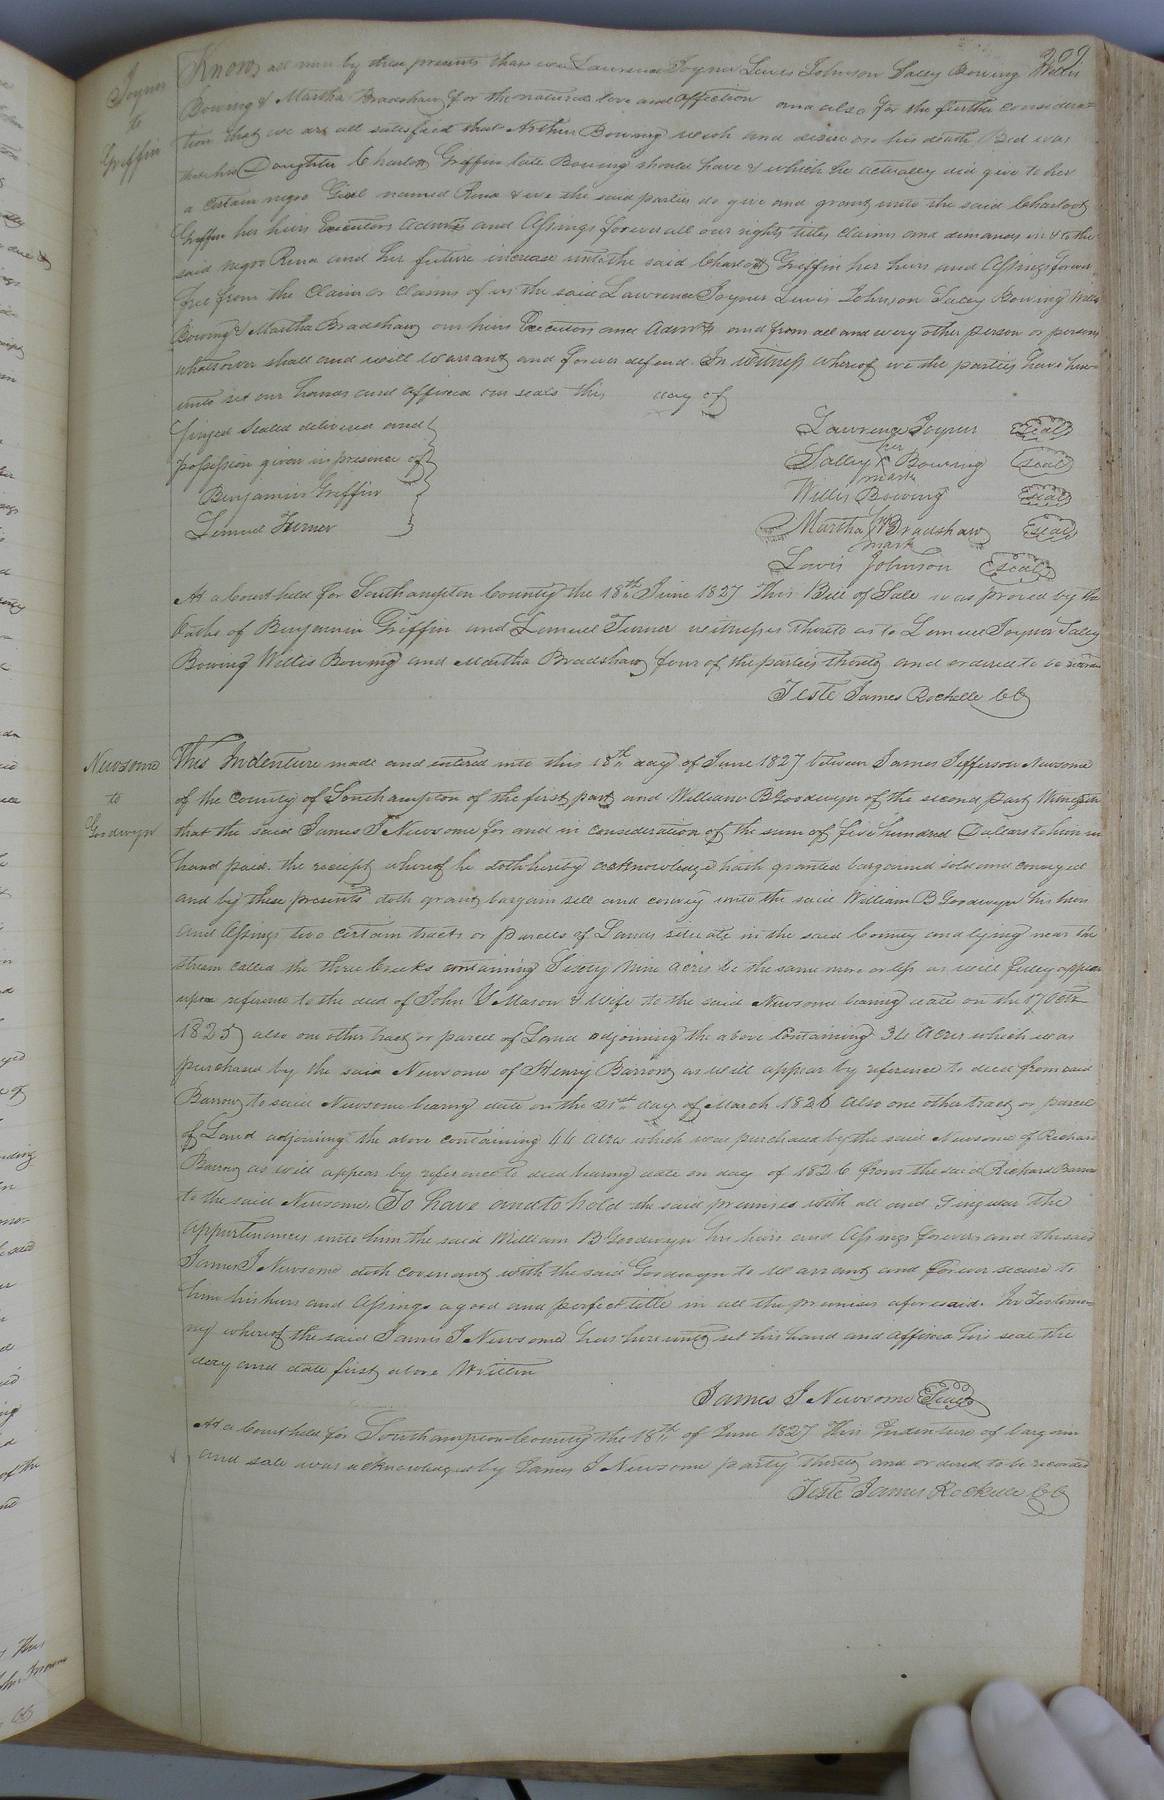 309
Joyner
to
Griffin
Know all men by these presents that we Lawrence Joyner Lewis Johnson Salley Bowing Willis
Bowing & Martha Bradshaw for the natural love and affection and also for the further considera=
tion that we are all satisfied that Arthur Bowing wish and desire on his death Bed was
that his Daughter Charlott Griffin late Bowing should have & which he actually did give to her
a certain negro Girl named Rena & we the said parties do give and grant unto the said Charlott
Griffin her heirs Executors Admrs and Assings forever all our rights titles claims and demands in & to the
said negro Rena and her future increase unto the said Charlott Griffin her heirs and Assings forever
free from the Claim or claims of us the said Lawrence Joyner Lewis Johnson Salley Bowing Willis
Bowing & Martha Bradshaw our heirs Executors and Admrs and from all and every other person or persons
whatsoever shall and will warrant and forever defend. In witness whereof we the parties have here
unto set our hands and affixed our seals this day of
Singed Sealed delivered and
possession given in presence of
Benjamin Griffin
Lemuel Turner
Lawrence Joyner Seal
Salley her Bowing seal
mark
Willis Bowing Seal
Martha her Bradshaw Seal
mark
Lewis Johnson Seal
At a Court held for Southampton County the 18th June 1827 This Bill of Sale was proved by the
Oaths of Benjamin Griffin and Lemuel Turner witnesses thereto as to Lemuel Joyner Salley
Bowing Willis Bowing and Martha Bradshaw four of the parties thereto and ordered to be
Teste James Rochelle CC
Newsome
to
Goodwyn
This Indenture made and entered into this 18th day of June 1827 between James Jefferson Newsome
of the County of Southampton of the first part and William B Goodwyn of the second part Witnesseth
that the said James J Newsome for and in consideration of the sum of five hundred Dollars to him in
hand paid. the receipt whereof he doth hereby acknowledge hath granted bargained sold and conveyed
and by these presents doth grant bargain sell and convey unto the said William B Goodwyn his heirs
and Assings two certain tracts or parcells of Lands situate in the said County and lying near the
stream called the three Creeks containing Sixty Nine acres be the same more or less as will fully appear
upon reference to the deed of John Y Mason & Wife to the said Newsome bearing date on the 17 Octr
1825 also one other tract or parcel of Land adjoining the above Containing 34 Acres which was
purchased by the said Newsome of Henry Barrow as will appear by reference to deed from said
Barrow to said Newsome bearing date on the 21st day of March 1826 also one other tract or parcel
of Land adjoining the above containing 44 acres which was purchased by the said Newsome of Richard
Barrow as will appear by reference to deed bearing date on day of 1826 from the said Richard Barrow
to the said Newsome. To have and to hold the said premises with all and Singular the
Appurtenances unto him the said William B Goodwyn his heirs and Assings forever and the said
James J Newsome doth covenant with the said Goodwyn to Warrant and forever secure to
him his heirs and Assings a good and perfect title in all the premises aforesaid. In Testimo=
ny whereof the said James J Newsome has hereunto set his hand and affixed his seal the
day and date first above Written
James J Newsome Seal
At a Court held for Southampton County the 18th of June 1827 This Indenture of bargain
and sale was acknowledged by James J Newsome party thereto and ordered to be recorded
Teste James Rochelle CC